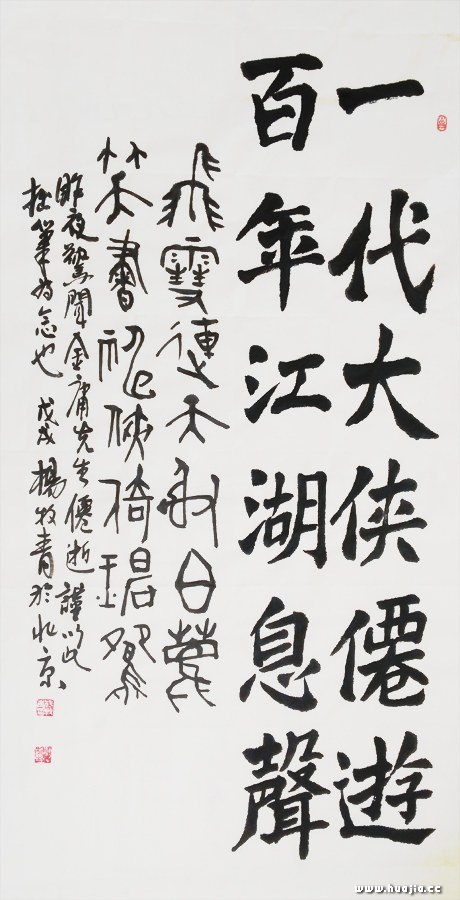 一代大俠僊遊
百年江湖息聲
飛雪連天射白鹿
笑書神俠倚碧鴛
昨夜驚聞金庸先生僊逝謹以此
拙筆為念也 戊戌楊牧青於北京
www.huajia.cc